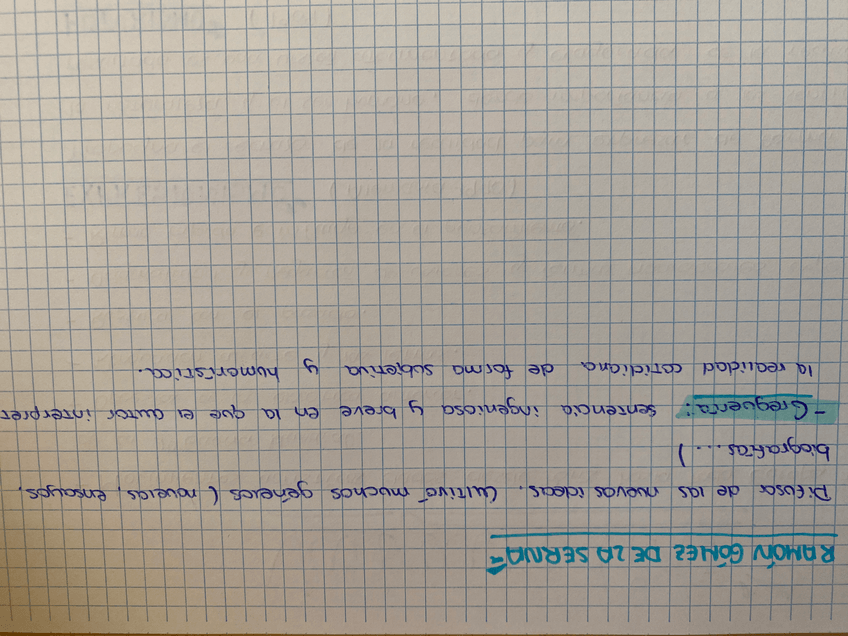 RAMÓN GÓMEZ DE LA SERNA
Difusor de las nuevas ideas. Cultivó muchos géneros (novelas, ensayos,
biografías...)
- Greguería: sentencia ingeniosa y breve en la que el autor interpret
la realidad cotidiana de forma subjetiva y humorística.